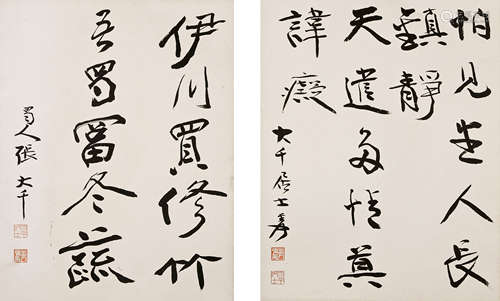 怕見生人長
鎮靜
天遣多情莫
諱癡
大千居士爰
伊川買修竹
吾蜀富冬蔬
蜀人張大千